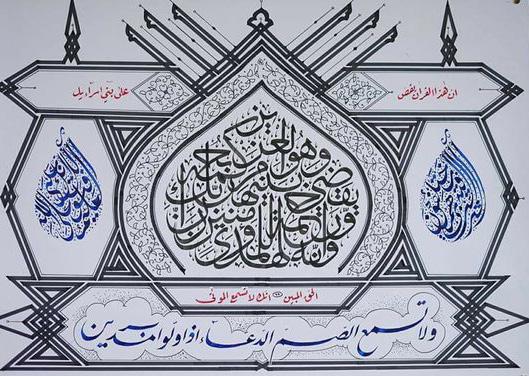 ان هذا القرآن يقص على بني اسراءيل
وانه لهدى ورحمة للمؤمنين ان ربك يقضى بينهم بحكمه وهو العزيز
الحق المبين انك لا تسمع الموتى
ولا تسمع الصم الدعاء اذا ولوا مدبرين